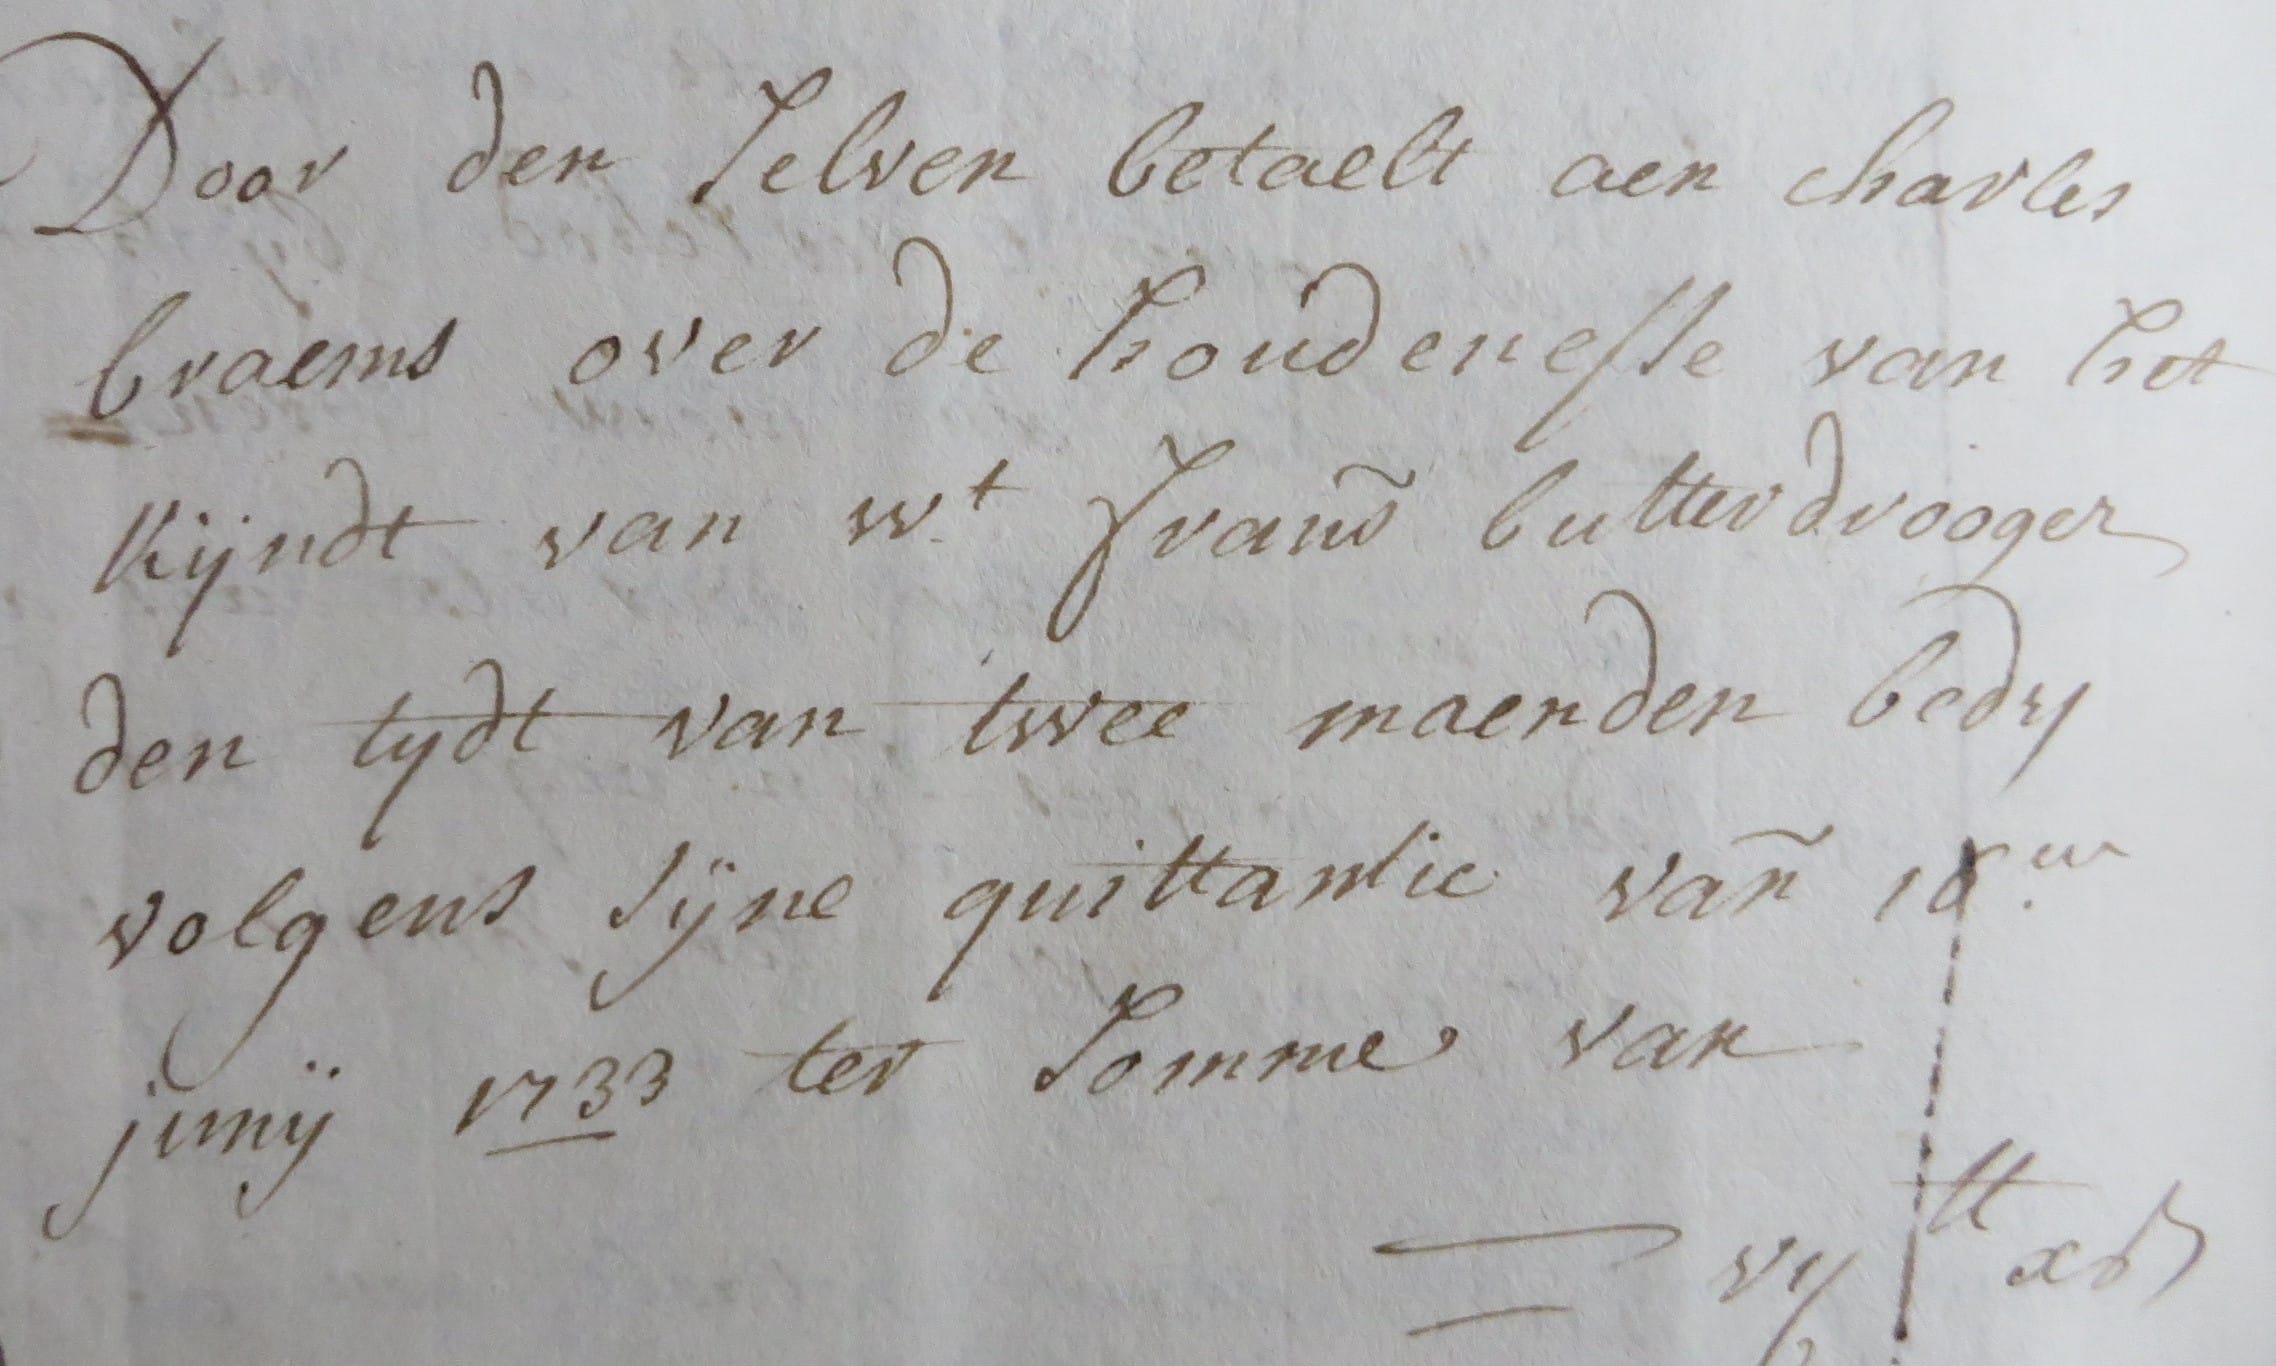 Door den selven betaelt aen charles
braems over de houdenesse van het
kijndt van w.t frans butterdrooger
den tydt van twee maenden bedy
volgens sijne quittantie van 18.en
junij 1733 ter somme van